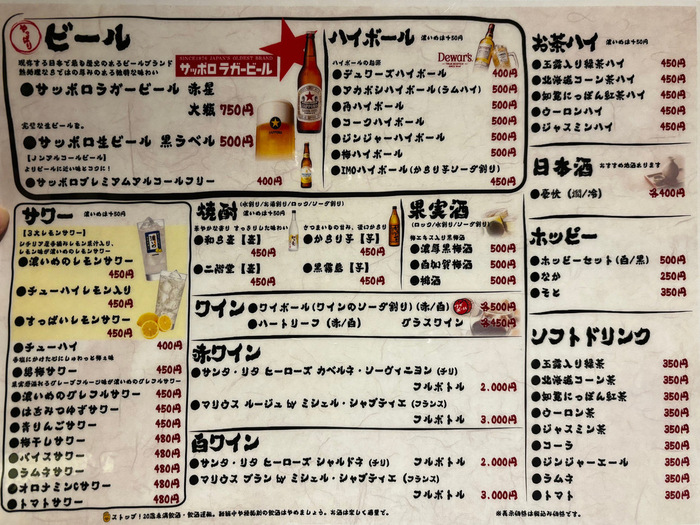 やっぱり
ビール
現存する日本で最も歴史のあるビールブランド
熱処理ならではの厚みのある独特な味わい
SINCE1876 JAPAN'S OLDEST BRAND
サッポロラガービール
●サッポロラガービール 赤星
大瓶 750円
完璧な生ビールを。
●サッポロ生ビール 黒ラベル 500円
【ノンアルコールビール】
よりビールに近い味とコクに!
●サッポロプレミアムアルコールフリー 400円
ハイボール 濃いめは+50円
ハイボールのお酒
Dewar's
●デュワーズハイボール 400円
●アカボシハイボール(ラムハイ) 500円
●角ハイボール 500円
●コークハイボール 500円
●ジンジャーハイボール 500円
●梅ハイボール 500円
●IMOハイボール(かるり子ソーダ割り)
450円
お茶ハイ 濃いめは+50円
●玉露入り緑茶ハイ 450円
●北海道コーン茶ハイ 450円
●知覧にっぽん紅茶ハイ 450円
●ウーロンハイ 450円
●ジャスミンハイ 450円
日本酒 おすすめ地酒あります
●春秋(燗/冷) 各400円
ホッピー
●ホッピーセット(白/黒) 500円
●なか 250円
●そと 350円
ソフトドリンク
●玉露入り緑茶 350円
●北海道コーン茶 350円
●知覧にっぽん紅茶 350円
●ウーロン茶 350円
●ジャスミン茶 350円
●コーラ 350円
●ジンジャーエール 350円
●ラムネ 350円
●トマト 350円
サワー 濃いめは+50円
【3大レモンサワー】
シチリア産手摘みレモン果汁入り、
レモン味が濃いめのレモンサワー
●濃いめのレモンサワー
450円
●チューハイレモン入り
450円
●すっぱいレモンサワー
450円
●チューハイ 400円
●男梅サワー 450円
果実感溢れるグレープフルーツ味が濃いめのグレフルサワー
●濃いめのグレフルサワー 450円
●はちみつゆずサワー 450円
●青りんごサワー 450円
●梅干しサワー 480円
●バイスサワー 480円
●ラムネサワー 480円
●オロナミンCサワー 480円
●トマトサワー 480円
焼酎 (水割り/お湯割り/ロック/ソーダ割り)
濃いめは+50円
華やかな香り すっきりした味わい
●和ら麦【麦】
450円
●二階堂【麦】
450円
さつまいもの甘み、深いかほり
●かるり子【芋】
450円
●黒霧島【芋】
450円
果実酒
(ロック/水割り/ソーダ割り)
梅エキス入り黒梅酒
●濃厚黒梅酒 500円
●白加賀梅酒 500円
●梅酒 500円
ワイン
●ワイボール(ワインのソーダ割り)(赤/白) 各500円
●ハートリーフ(赤/白) グラスワイン 各450円
赤ワイン
●サンタ・リタ ヒーローズ カベルネ・ソーヴィニヨン(チリ)
フルボトル 2.000円
●マリウス ルージュ by ミシェル・シャプティエ(フランス)
フルボトル 3.000円
白ワイン
●サンタ・リタ ヒーローズ シャルドネ(チリ) フルボトル 2.000円
●マリウス ブラン by ミシェル・シャプティエ(フランス)
フルボトル 3.000円
ストップ!20歳未満飲酒・飲酒運転。妊娠中や授乳期の飲酒はやめましょう。お酒は楽しく適量で。
※表示価格は税込み価格です。